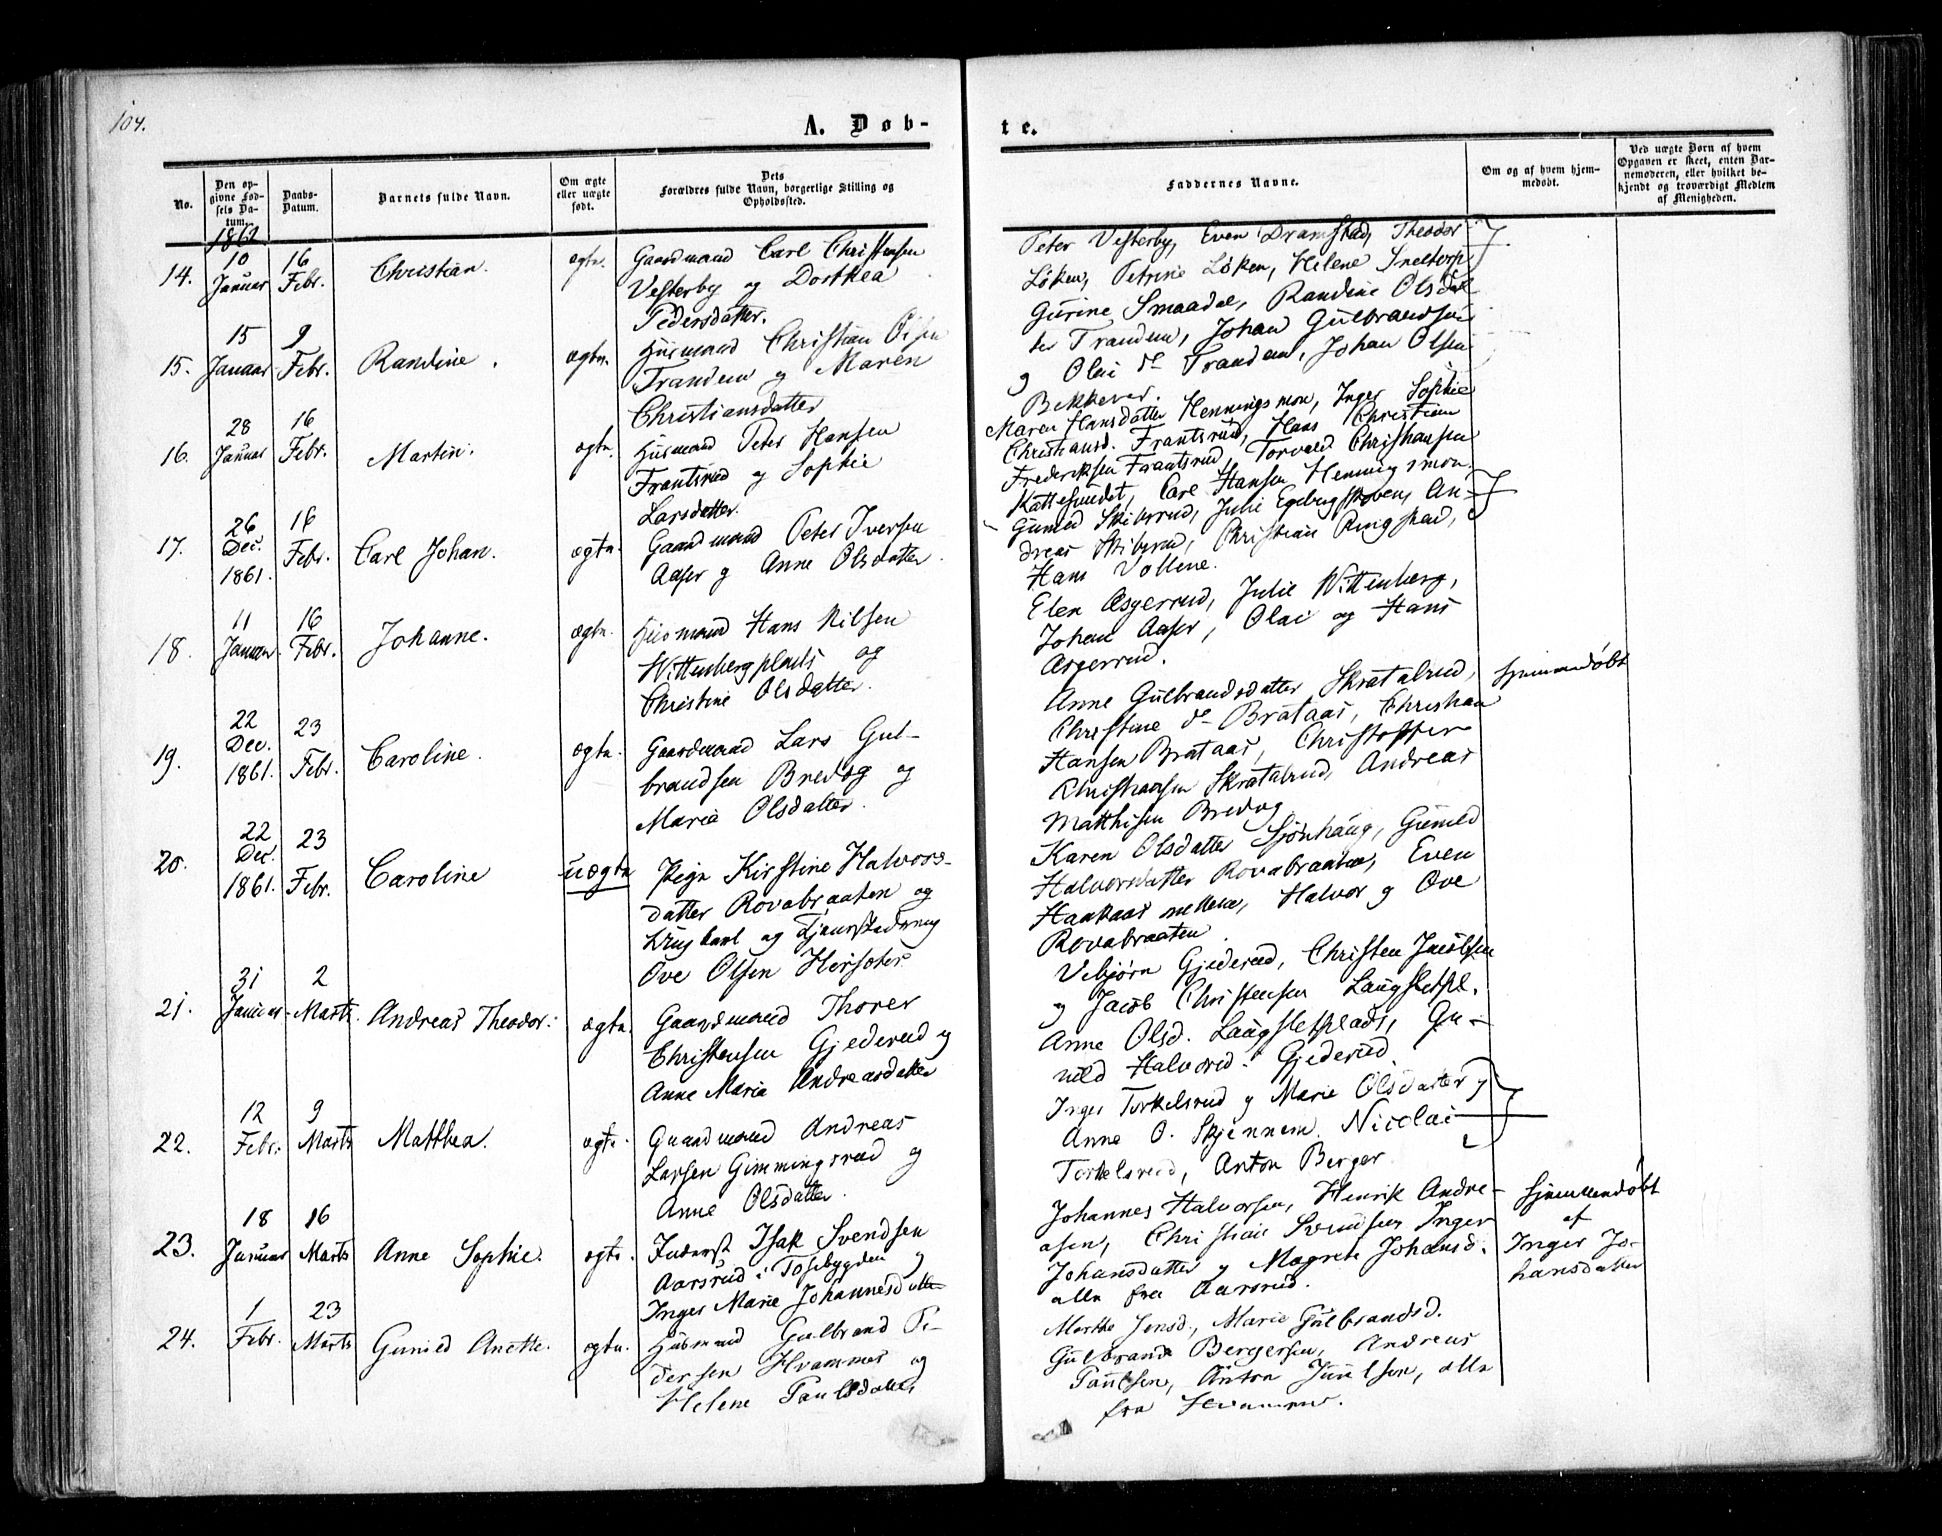 104.
A. Døb-
te.
No.
Den op-
givne Fød-
sels Da-
tum.
Daabs-
Datum.
Barnets fulde Navn.
Om ægte
eller uægte
født.
Dets
Forældres fulde Navn, borgerlige Stilling og
Opholdssted.
Faddernes Navne.
Om og af hvem hjem-
medøbt.
Ved uægte Børn af hvem
Opgaven er skeet, enten Bar-
nemoderen, eller hvilket be-
kjendt og troværdigt Medlem
af Menigheden.
1862
14.
10
Januar
16
Febr.
Christian.
ægte.
Gaardmand Carl Christensen
Vesterby og Dorthea
Pedersdatter.
Peter Vesterby, Even Dramstad, Theodor
Løken, Petrine Løken, Helene
Gurine Smaadal,
15.
15
Januar
9
Febr.
Randine.
ægte.
Husmand Christian Olsen
Trandem og Maren
Christiansdatter
Randine Olsdat
ter Trandem, Johan Gulbrandsen
og Olai do Trandem, Johan Olsen
Bekkevar.
16.
28
Januar
16
Febr.
Martin.
ægte.
Husmand Peter Hansen
Frantsrud og Sophie
Larsdatter.
Maren Hansdatter Henningsmon, Inger Sophie
Christiansd. Frantsrud, Hans Christian
Frederiksen Frantsrud, Torvald Christiansen
Kattesundet, Carl Hansen Henningsmon.
17.
26
Dec.
1861.
16
Febr.
Carl Johan.
ægte.
Gaardmand Peter Iversen
Aaser og Anne Olsdatter.
Gunild Skiberud, Julie Engebugskoven, An-
dreas Skiberud, Christian Ringstad,
Hans Vollene.
18.
11
Januar
16
Febr.
Johanne.
ægte.
Husmand Hans Nilsen
Wittenbergplads og
Christine Olsdatter.
Elen Asgerrud, Julie Wittenberg,
Johan Aaser, Olai og Hans
Asgerrud.
19.
22
Dec.
1861.
23
Febr.
Caroline.
ægte.
Gaardmand Lars Gul-
brandsen Bredog og
Marie Olsdatter.
Anne Gulbrandsdatter Skratalrud,
Christine do Brataas, Christian
Hansen Brataas, Christoffer
Christiansen Skratalrud, Andreas
Matthisen Bredog
Hjemmedøbt
20.
22
Dec.
1861.
23
Febr.
Caroline
uægte
Pige Kirstine Halvors-
datter Rovabraaten og
Ungkarl og Tjenestedreng
Ove Olsen Hersøter
Karen Olsdatter Sjönhaug, Gunild
Halvorsdatter Rovabraaten, Even
Haakaas mellem, Halvor og Ove
Rovabraaten.
21.
31
Januar
2
Marts
Andreas Theodor.
ægte.
Gaardmand Thorer
Christensen Gjederud og
Anne Maria Andreasdatter
Vebjørn Gjederud, Christen Jacobsen
og Jacob Christensen Laugsletpl.
Anne Olsd. Laugsletplads, Gu-
nild Halvorsd. Gjederud.
22.
12
Febr.
9
Marts
Matthea.
ægte.
Gaardmand Andreas
Larsen Gimmingsrud og
Anne Olsdatter.
Inger Torkelsrud og Marie Olsdatter og
Anne O. Skjennem. Nicolai
Torkelsrud, Anton Berger
23.
18
Januar
16
Marts
Anne Sophie.
ægte.
Inderst Isak Svendsen
Aarsrud i Tosebygden og
Inger Marie Johannesdatter
Johannes Halvorsen, Henrik Andre-
asen, Christian Svendsen Inger
Johansdatter og Magrete Johansd.
alle fra Aarsrud.
Hjemmedøbt
af
Inger Jo-
hansdatter
24.
1
Febr.
23
Marts
Gunild Anette.
ægte.
Husmand Gulbrand Pe-
dersen Hvammer og
Helene Paulsdatter
Marthe Jensd., Marie Gulbrandsd.
Gulbrand Bergersen, Andreas
Paulsen, Anton Juulsen, alle
fra Hvammer.